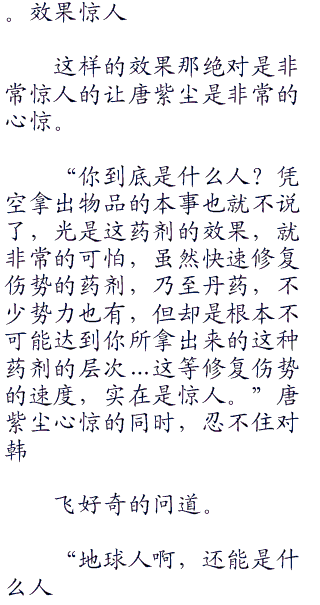 。效果惊人
这样的效果那绝对是非
常惊人的让唐紫尘是非常的
心惊。
“你到底是什么人？凭
空拿出物品的本事也就不说
了，光是这药剂的效果，就
非常的可怕，虽然快速修复
伤势的药剂，乃至丹药，不
少势力也有，但却是根本不
可能达到你所拿出来的这种
药剂的层次...这等修复伤势
的速度，实在是惊人。”唐
紫尘心惊的同时，忍不住对
韩
飞好奇的问道。
“地球人啊，还能是什
么人